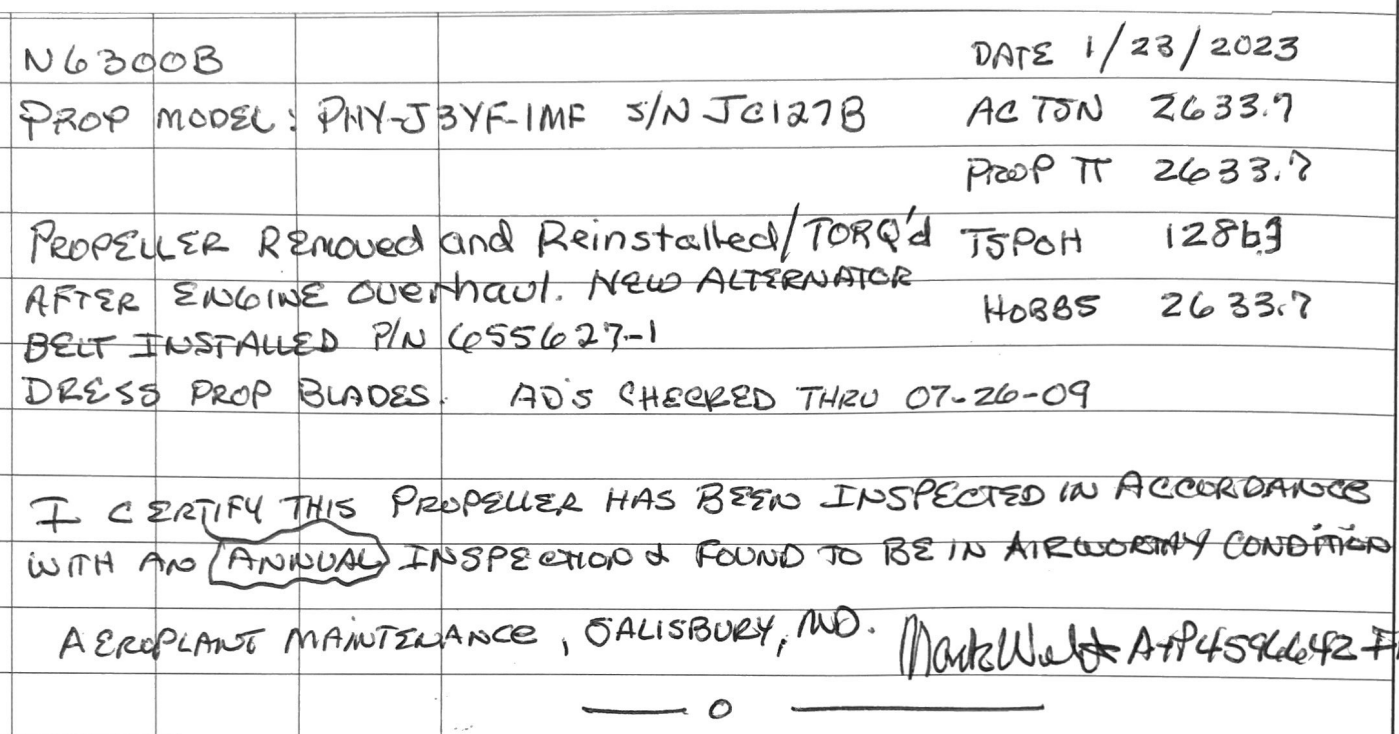 N6300B DATE 1/23/2023
PROP MODEL: PHY-J3YF-1MF S/N JC127B AC TSN 2633.7
PROP TT 2633.7
PROPELLER REMOVED and Reinstalled/TORQ'd TSPOH
AFTER ENGINE OVERHAUL. NEW ALTERNATOR
HOBBS 2633.7
BELT INSTALLED P/N 655627-1
DRESS PROP BLADES. AD'S CHECKED THRU 07-26-09
I CERTIFY THIS PROPELLER HAS BEEN INSPECTED IN ACCORDANCE
WITH AN ANNUAL INSPECTION & FOUND TO BE IN AIRWORTHY CONDITION
AEROPLANT MAINTENANCE, SALISBURY, MD. Mark A+P4596642